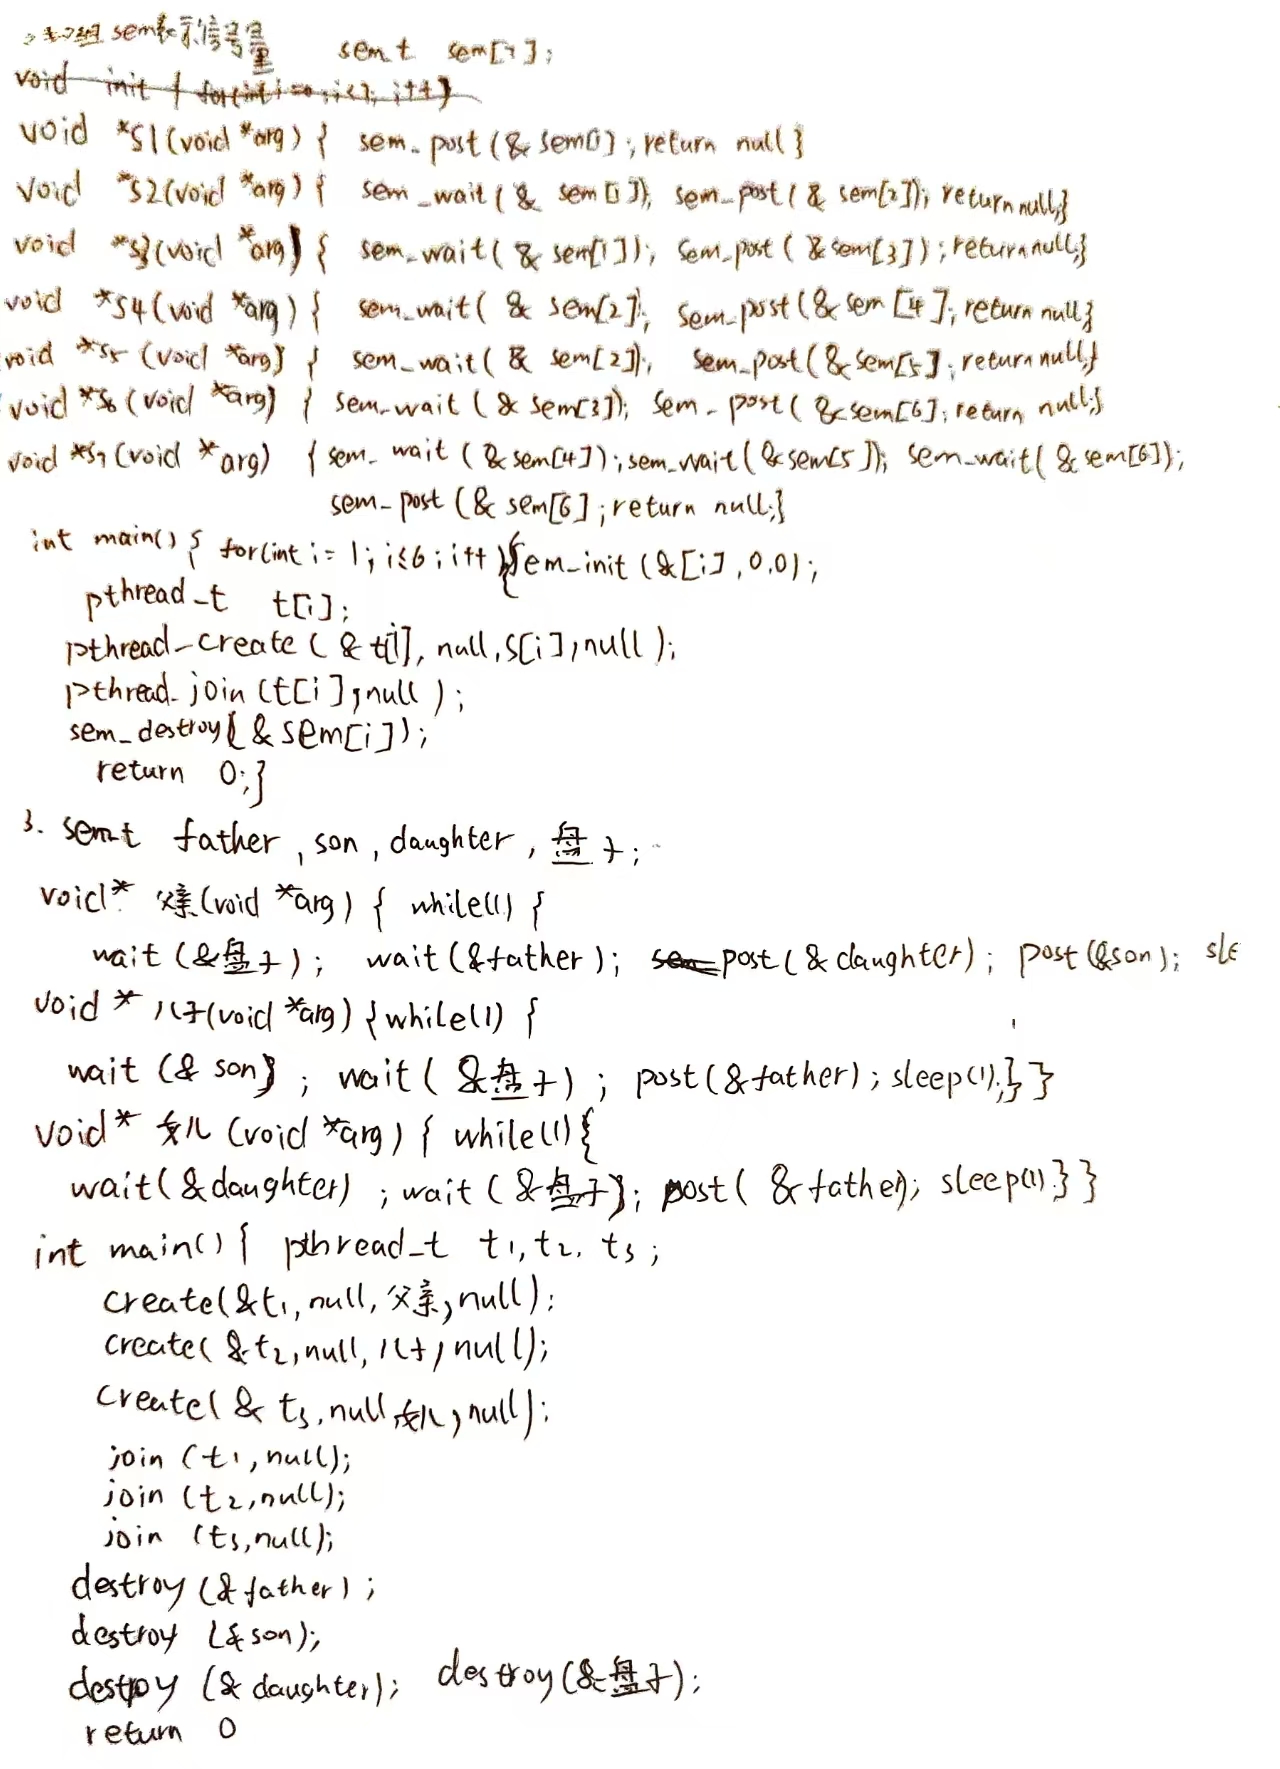 2. 数组 sem表示信号量 sem_t sem[7];
void init { for(int i=0;i<7;i++)
void *S1(void *arg) { sem_post(&sem[1]; return null }
void *S2(void *arg) { sem_wait(& sem[1]); sem_post(& sem[2]); return null;}
void *S3(void *arg) { sem_wait(& sem[1]); sem_post(&sem[3]); return null;}
void *S4(void *arg) { sem_wait(& sem[2]; sem_post(&sem[4]; return null;}
void *S5(void *arg) { sem_wait(& sem[2]); sem_post(&sem[5]; return null;}
void *S6(void *arg) { sem_wait(& sem[3]); sem_post(&sem[6]; return null;}
void *S7(void *arg) {sem_wait(&sem[4]); sem_wait(&sem[5]); sem_wait(&sem[6]);
sem_post(& sem[6]; return null;}
int main() { for(int i=1; i≤6; i++){sem_init(&[i],0,0);
pthread_t t[i];
pthread_create(& t[i], null, S[i], null);
pthread_join(t[i], null);
sem_destroy(&sem[i]);
return 0;}
3. sem_t father, son, daughter, 盘子;
void* 父亲(void *arg) { while(1) {
wait(&盘子); wait(&father); sem post(&daughter); post(&son); sle
void * 儿子(void *arg) {while(1) {
wait(& son); wait(&盘子); post(&father); sleep(1);}}
void* 女儿(void *arg) { while(1){
wait(&daughter); wait(&盘子); post(&father); sleep(1)}}
int main() { pthread_t t1, t2, t3;
create(&t1, null, 父亲, null);
create(&t2, null, 儿子, null);
create(& t3, null, 女儿, null);
join(t1, null);
join(t2, null);
join(t3, null);
destroy(&father);
destroy(&son);
destroy(&daughter); destroy(&盘子);
return 0